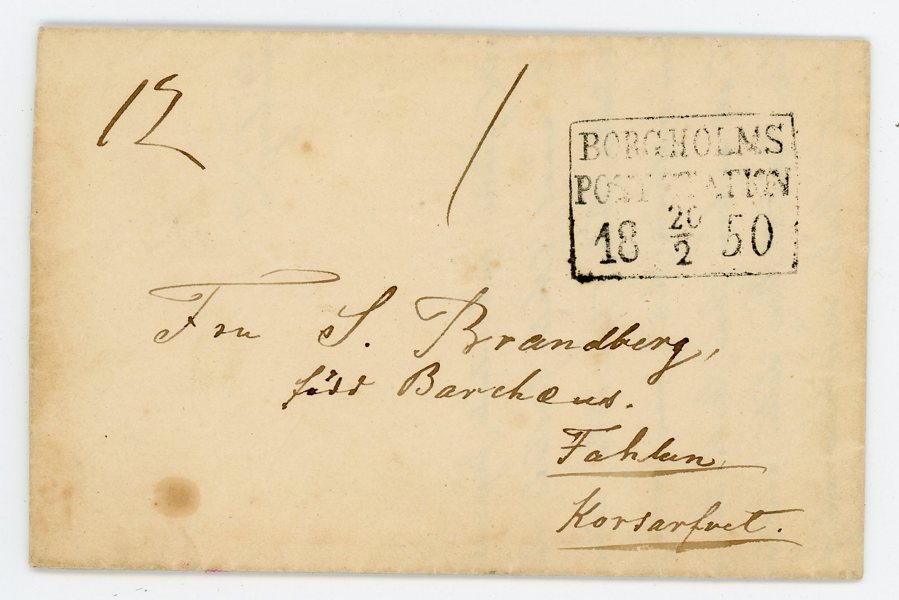 12 /
BORGHOLMS
POSTSTATION
18 20/2 50
Fru S. Brandberg,
född Barchæus.
Fahlun
Korsarfvet.